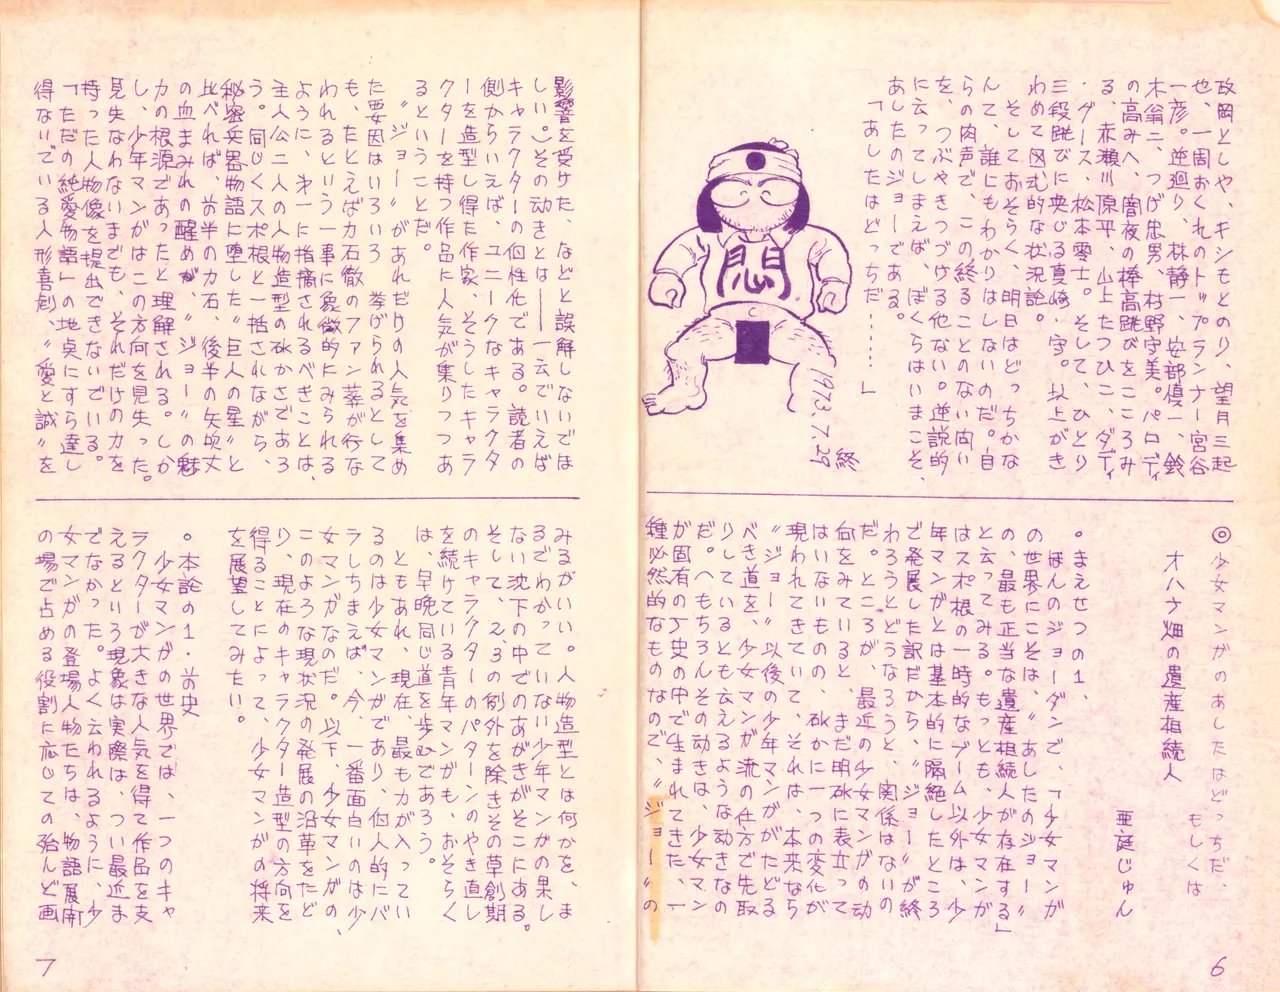 政岡としや、キシもとのり、望月三起
也、一周おくれのトップランナー宮谷
一彦。逆廻り、林静一、安部慎一、鈴
木翁二、つげ忠男、村野守美。パロディ
の高みへ、闇夜の棒高跳びをこころみ
る、赤瀬川原平、山上たつひこ、ダディ
・グース、松本零士。そして、ひとり
三段跳びに興じる真崎・守。以上がき
わめて図式的な状況論。
そしておそらく、明日はどっちかな
んて、誰にもわかりはしないのだ。自
らの肉声で、この終ることのない問い
を、つぶやきつづける他ない。逆説的
に云ってしまえば、ぼくらはいまこそ、
あしたのジョーである。
「あしたはどっちだ………」
終
1973.7.29
悶
◎少女マンガのあしたはどっちだ、
もしくは
オハナ畑の遺産相続人
亜庭じゅん
。まえせつの1、
ほんのジョーダンで、「少女マンガ
の世界にこそは、〝あしたのジョー〟
の、最も正当な遺産相続人が存在する」
と云ってみる。もっとも、少女マンガ
はスポ根の一時的なブーム以外は、少
年マンガとは基本的に隔絶したところ
で発展した訳だから、〝ジョー〟が終
わろうとどうなろうと、関係はないの
だ。ところが、最近の少女マンガの動
向をみていると、まだ明確に表立って
はいないものの、確かに一つの変化が
現われてきていて、それは、本来なら
〝ジョー〟以後の少年マンガがたどる
べき道を、少女マンガが流の仕方で先取
りしているとも云えるような動きなの
だ。へもちろんその動きは、少女マン
ガ固有の歴史の中で生まれてきた、一
種必然的なものなので、〝ジョー〟の
6
影響を受けた、などと誤解しないでほ
しい。)その動きとは――一云でいえば
キャラクターの個性化である。読者の
側からいえば、ユニークなキャラクタ
ーを造型し得た作家、そうしたキャラ
クターを持つ作品に人気が集りつつあ
るということだ。
〝ジョー〟があれだけの人気を集め
た要因はいろいろ挙げられるとして
も、たとえば力石徹のファン葬が行な
われるという一事に象徴的にみられる
ように、第一に指摘されるべきことは、
主人公二人の人物造型の確かさであろ
う。同じくスポ根と一括されながら、
秘密兵器物語に堕した〝巨人の星〟と
比べれば、前半の力石、後半の矢吹丈
の血まみれの醒めが、〝ジョー〟の魅
力の根源であったと理解される。しか
し、少年マンガはこの方向を見失った。
見失なわないまでも、それだけの力を
持った人物像を提出できないでいる。
「ただの純愛物語」の地点にすら達し
得ないでいる人形喜劇、〝愛と誠〟を
みるがいい。人物造型とは何かを、ま
るでわかっていない少年マンガの果し
ない沈下の中でのあがきがそこにある。
そして、2、3の例外を除きその草創期
のキャラクターのパターンのやき直し
を続けている青年マンガも、おそらく
は、早晩同じ道を歩むであろう。
ともあれ、現在、最も力が入ってい
るのは少女マンガであり、個人的にバ
ラしちまえば、今、一番面白いのは少
女マンガなのだ。以下、少女マンガの、
このような現状況の発展の沿革をたど
り、現在のキャラクター造型の方向を
得ることによって、少女マンガの将来
を展望してみたい。
。本論の1・前史
少女マンガの世界では、一つのキャ
ラクターが大きな人気を得て作品を支
えるという現象は実際は、つい最近ま
でなかった。よく云われるように、少
女マンガの登場人物たちは、物語展開
の場で占める役割に応じての殆んど画
7